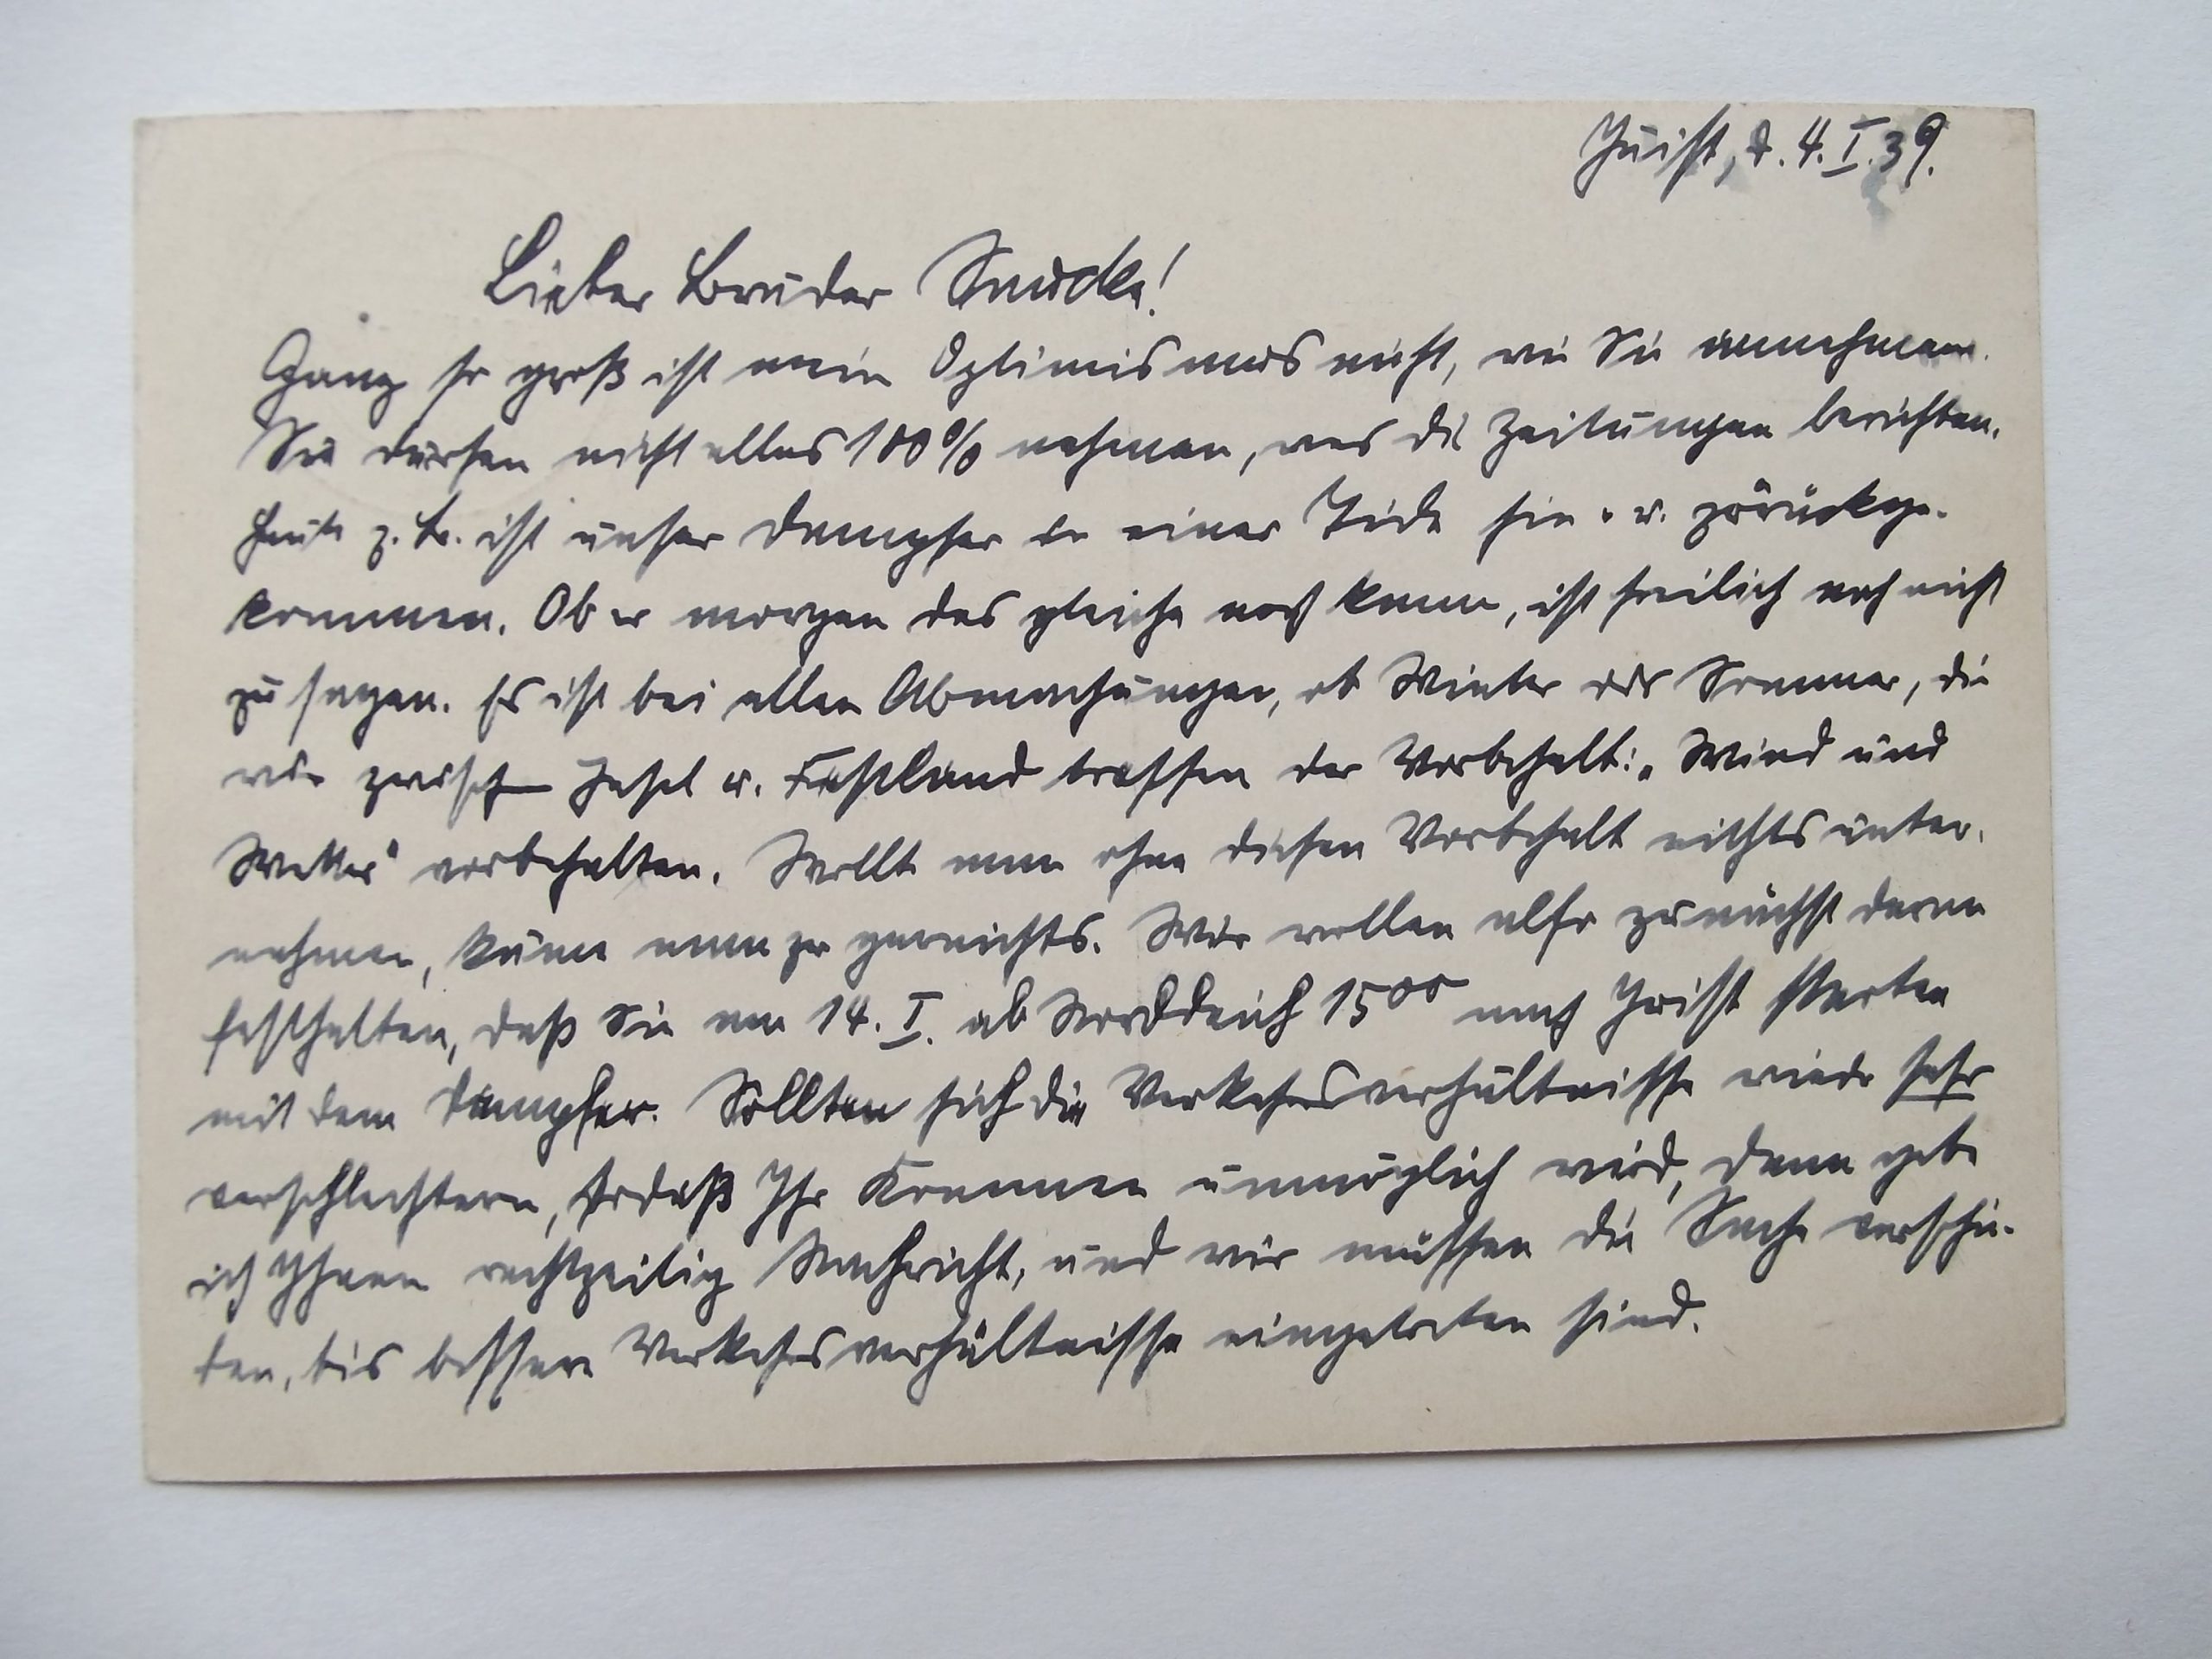 Juist, d. 4. I. 39.
Lieber Bruder
Ganz so groß ist mein Optimismus nicht, wie Sie annehmen.
Sie dürfen nicht alles 100% nehmen, was die Zeitungen berichten.
Heute z. B. ist unser Dampfer in einer Tide hin- u. zurückge-
kommen. Ob er morgen das gleiche noch kann, ist freilich noch nicht
zu sagen. Es ist bei allen Abmachungen, ob Winter oder Sommer, die
wir zwischen Insel u. Festland treffen der Vorbehalt: „Wind und
Wetter" vorbehalten. Wollte man ohne diesen Vorbehalt nichts unter-
nehmen, käme man zu garnichts. Wir wollen also zunächst daran
festhalten, daß Sie am 14. I. ab Norddeich 15⁰⁰ nach Juist starten
mit dem Dampfer. Sollten sich die Verkehrsverhältnisse wieder sehr
verschlechtern, sodaß Ihr Kommen unmöglich wird, dann gebe
ich Ihnen rechtzeitig Nachricht, und wir müssen die Sache verschie-
ben, bis bessere Verkehrsverhältnisse eingetreten sind.